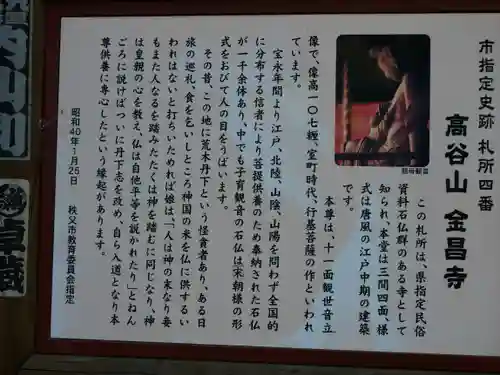 市指定史跡 札所四番
高谷山 金昌寺
この札所は、県指定民俗
資料石仏群のある寺として
知られ、本堂は三間四面、様
式は唐風の江戸中期の建築
です。
本尊は、十一面観世音立
像で、像高一〇七糎、室町時代、行基菩薩の作といわれ
ています。
宝永年間より江戸、北陸、山陰、山陽を問わず全国的
に分布する信者により菩提供養のため奉納された石仏
が一千余体あり、中でも子育観音の石仏は宋朝様の形
式をおびて人の目をうばいます。
その昔、この地に荒木丹下という怪賁者あり、ある日
旅の巡礼、食を乞いしところ神国の米を仏に供するい
われはないと打ちいためれば娘は、「人は神の末なり妾
もまた人なるを踏みたたくは神を踏むに同じなり、神
は皇親の心を教え、仏は自他平等を説かれたり」とねん
ごろに説けばついに丹下志を改め、自ら入道となり本
尊供養に専心したという縁起があります。
昭和40年1月25日
秩父市教育委員会指定
卓蔵